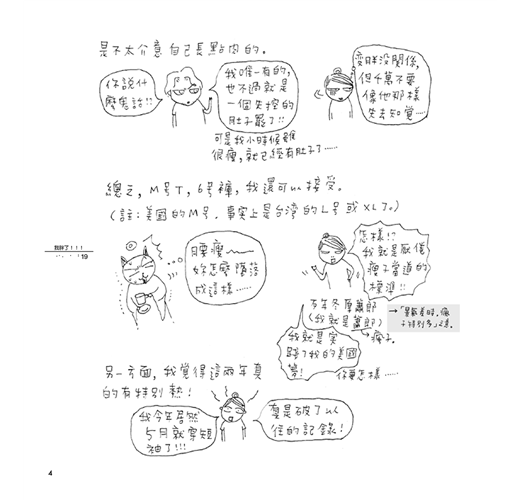 是不太介意自己長點肉的。
你說什
麼鬼話!!
我唯一有的,
也不過就是
一個失控的
肚子罷了!!
可是我小時候雖
很瘦,就已經有肚子了……
變胖沒關係,
但千萬不要
像他那樣
失去知覺……
總之,M号T,6号褲,我還可以接受。
(註:美國的M号,事實上是台灣的L号或XL了。)
我胖了!!!
19
腰瘦~~
妳怎麼墮落
成這樣……
怎樣!?
我就是厭倦
瘦子當道的
標準!!
(我就是
→瘦子。
我就是実
踐了我的美國
夢!
你要怎樣……
另一方面,我覺得這兩年真
的有特別熱!
我今年居然
5月就穿短
袖了!!!
真是破了以
往的記錄!
4